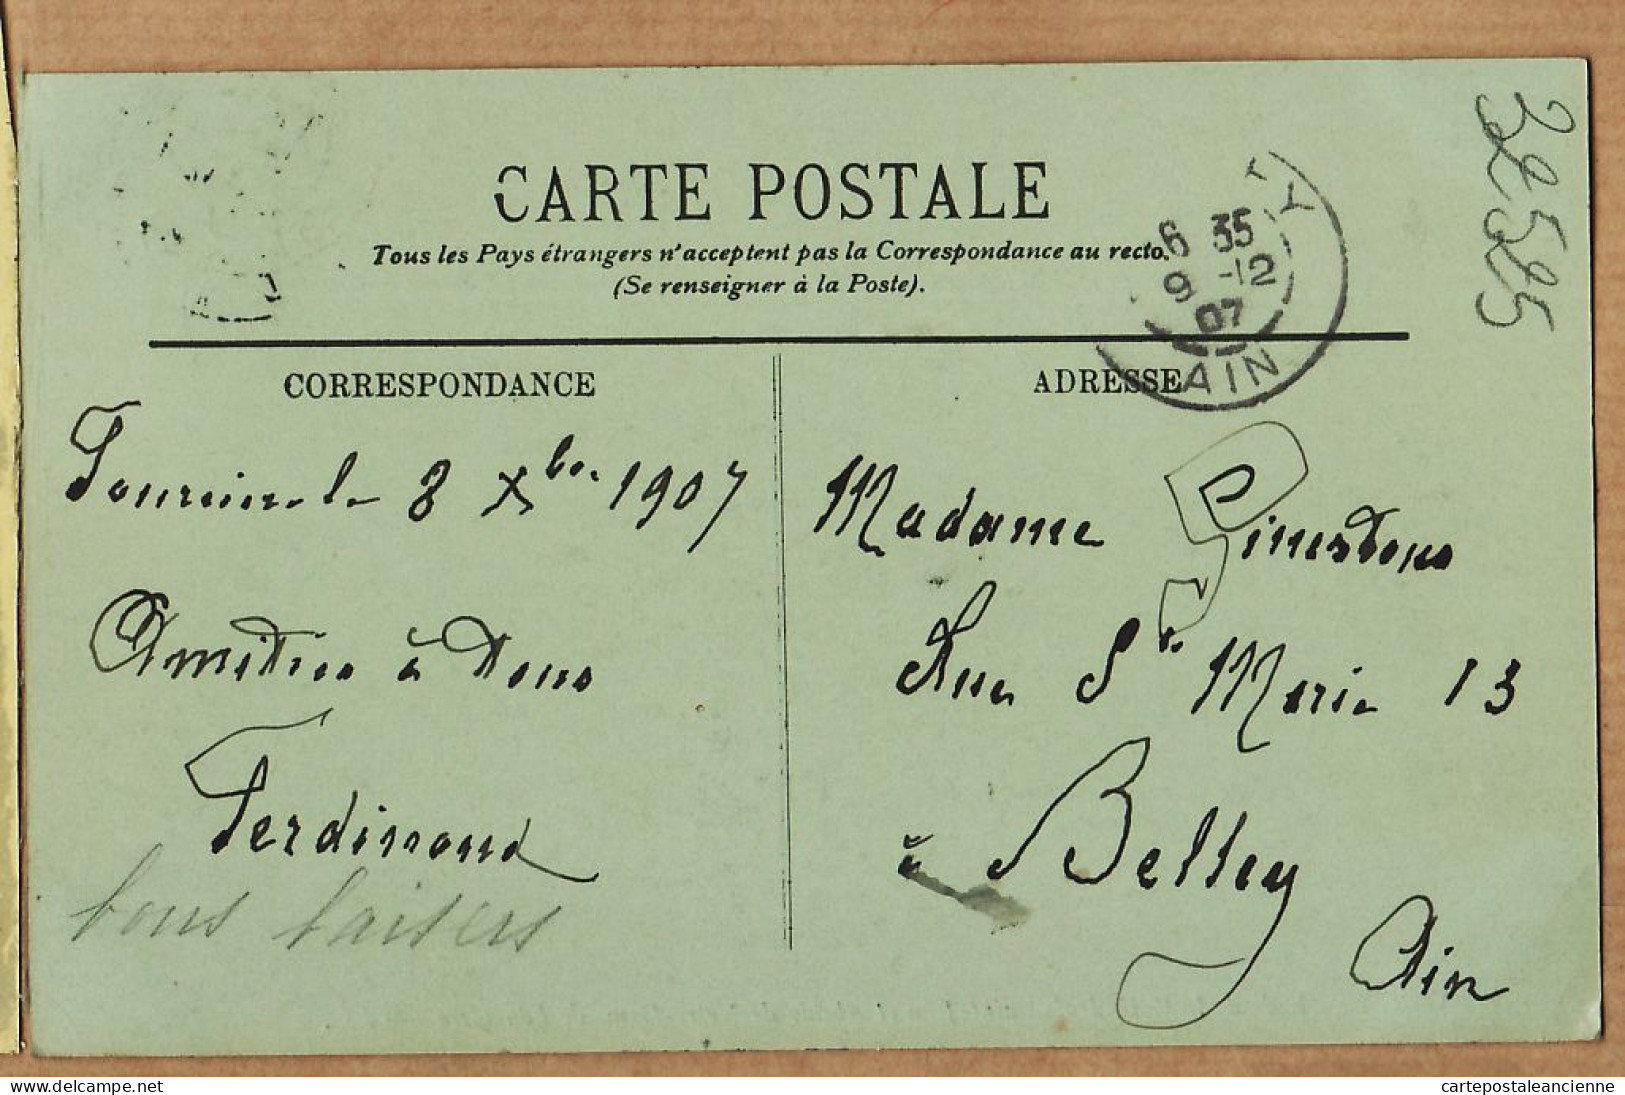 CARTE POSTALE
Tous les Pays étrangers n'acceptent pas la Correspondance au recto.
(Se renseigner à la Poste).
6 35
9 -12
07
AIN
32525
CORRESPONDANCE
le 8 Xbre 1907
Amitiés à tous
Ferdinand
bons baisers
ADRESSE
Madame Ginestous
Rue Ste Marie 13
à Belley
Ain
cartepostaleancienne